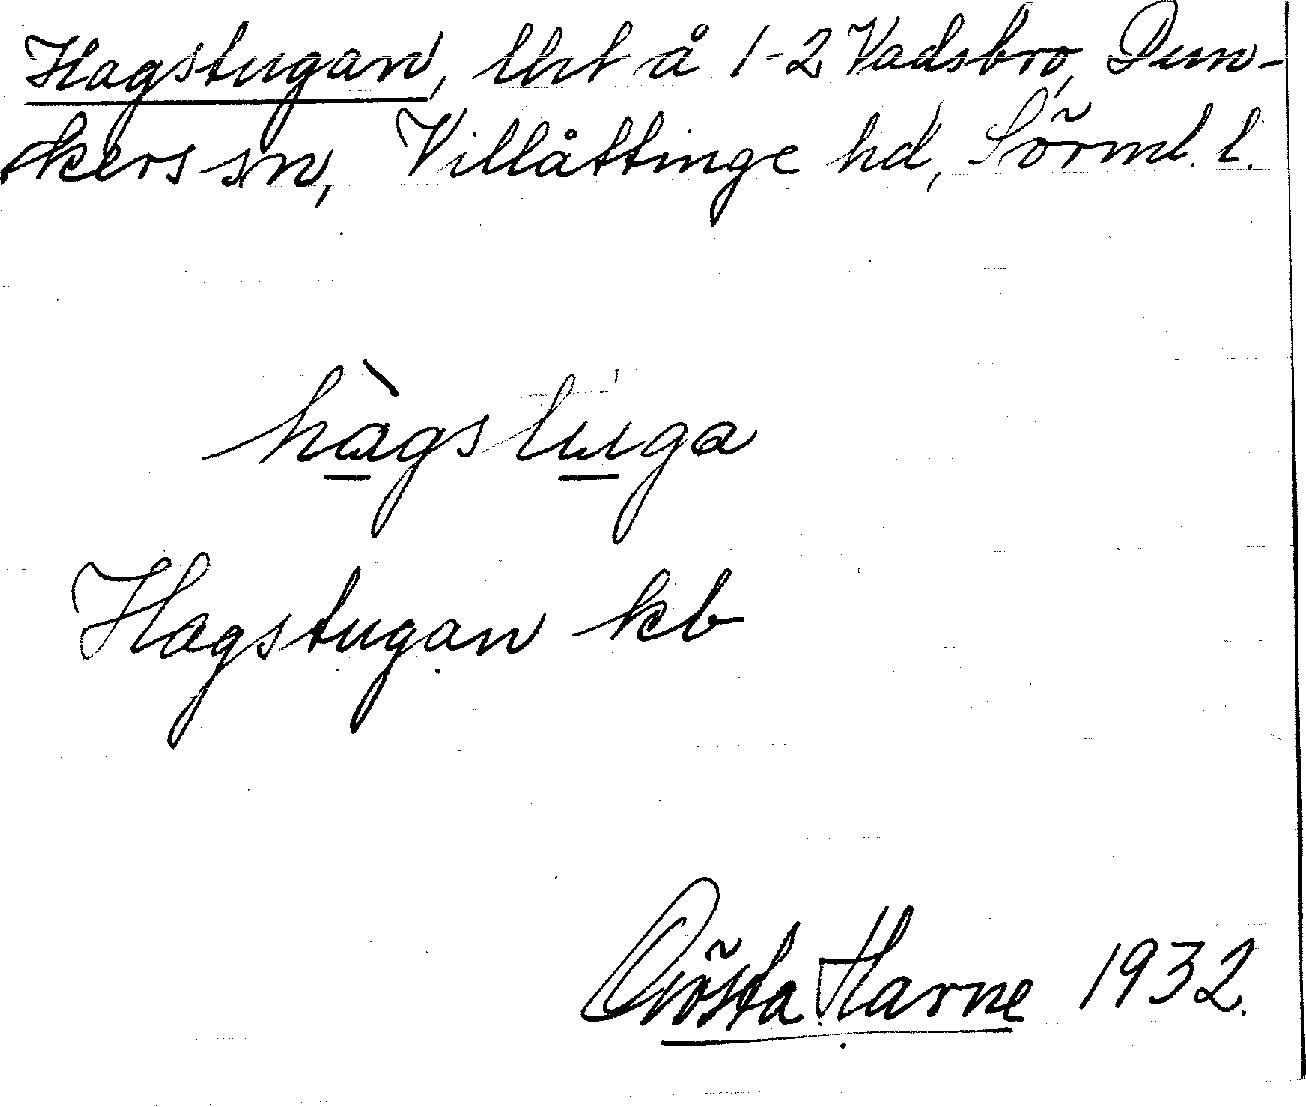 Hagstugan, lht å 1-2 Vadsbro, Dun-
kers sn, Villåttinge hd, Sörml. l.
hàgstúga
Hagstugan kb
Gösta Harne 1932.